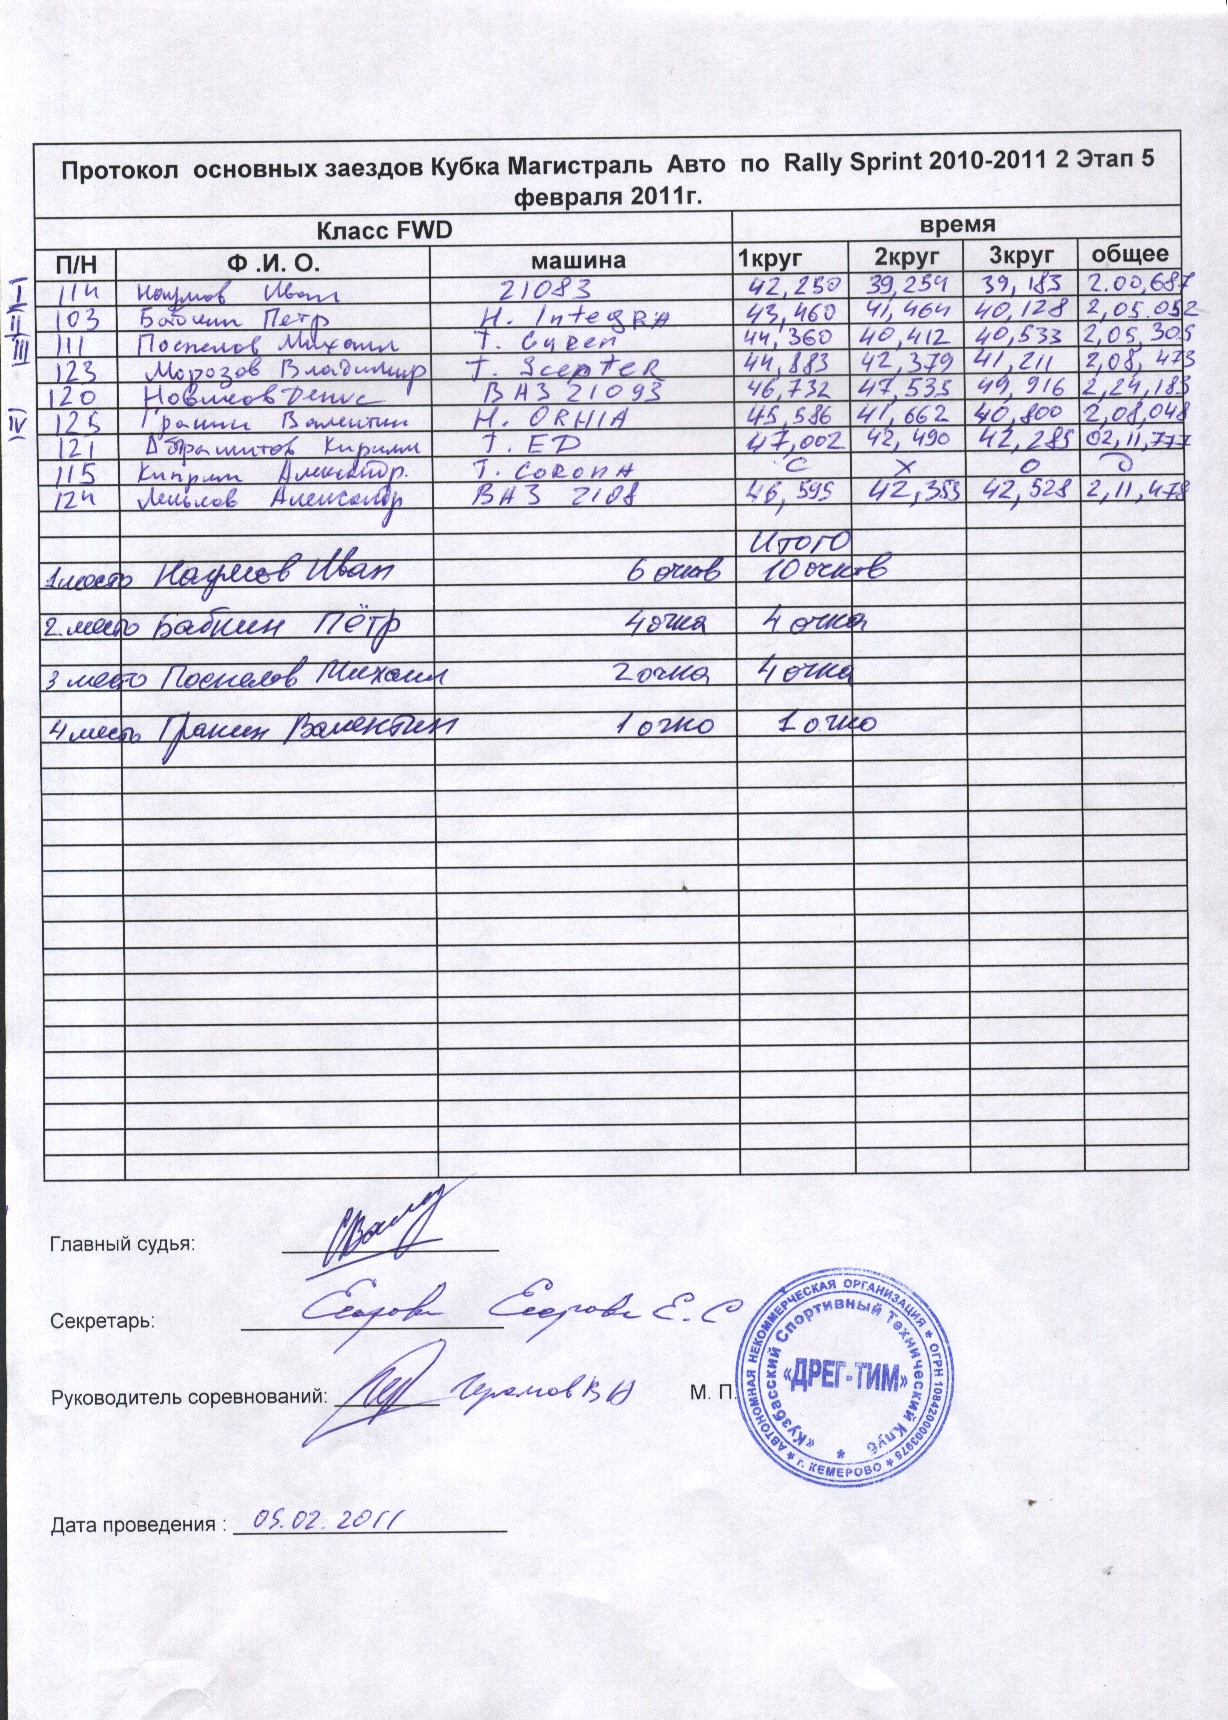 Протокол основных заездов Кубка Магистраль Авто по Rally Sprint 2010-2011 2 Этап 5
февраля 2011г.
Класс FWD время
П/Н Ф .И. О. машина 1круг 2круг 3круг общее
I 114 Наумов Иван 21083 42,250 39,254 39,183 2.00,687
II 103 Бабкин Петр H. Integra 43,460 41,464 40,128 2,05.052
III 111 Поспелов Михаил T. Curen 44,360 40,412 40,533 2,05,305
123 Морозов Владимир T. Scepter 44,883 42,379 41,211 2,08,473
120 Новиков Денис ВАЗ 21093 46,732 47,535 49,916 2,24,183
IV 125 Гранин Валентин H. ORHIA 45,586 41,662 40,800 2,08,048
121 Абрашитов Кирилл T. ED 47,002 42,490 42,285 02,11,777
115 Киприн Александр. T. CORONA С Х О Д
124 Александр ВАЗ 2108 46,595 42,353 42,528 2,11,478
Итого
1 место Наумов Иван 6 очков 10 очков
2 место Бабкин Пётр 4 очка 4 очка
3 место Поспелов Михаил 2 очка 4 очка
4 место Гранин Валентин 1 очко 1 очко
Главный судья:
Секретарь: Егорова Егорова Е.С
Руководитель соревнований: М. П.
Дата проведения : 05.02.2011
* АВТОНОМНАЯ НЕКОММЕРЧЕСКАЯ ОРГАНИЗАЦИЯ * ОГРН 1084200003975 * г. КЕМЕРОВО
«Кузбасский Спортивный Технический Клуб *
«ДРЕГ-ТИМ»